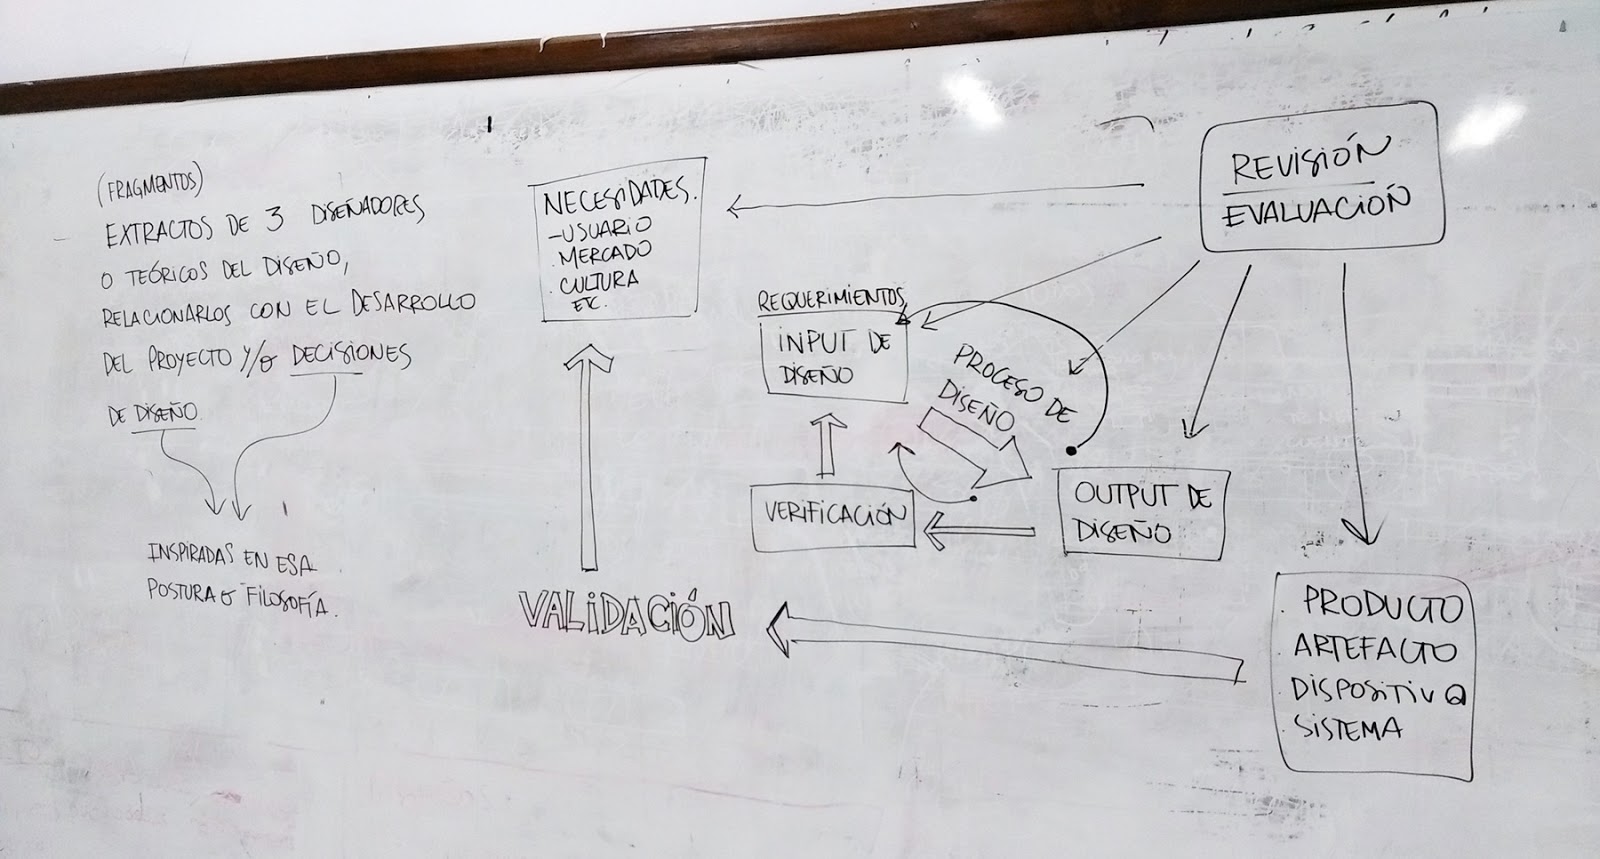 (FRAGMENTOS)
EXTRACTOS DE 3 DISEÑADORES
O TEÓRICOS DEL DISEÑO,
RELACIONARLOS CON EL DESARROLLO
DEL PROYECTO Y/O DECISIONES
DE DISEÑO
INSPIRADAS EN ESA
POSTURA O FILOSOFÍA.
NECESIDADES.
- USUARIO
. MERCADO
. CULTURA
ETC.
REQUERIMIENTOS
INPUT DE
DISEÑO
PROCESO DE
DISEÑO
VERIFICACIÓN
OUTPUT DE
DISEÑO
VALIDACIÓN
REVISIÓN
EVALUACIÓN
. PRODUCTO
. ARTEFACTO
. DISPOSITIVO
. SISTEMA